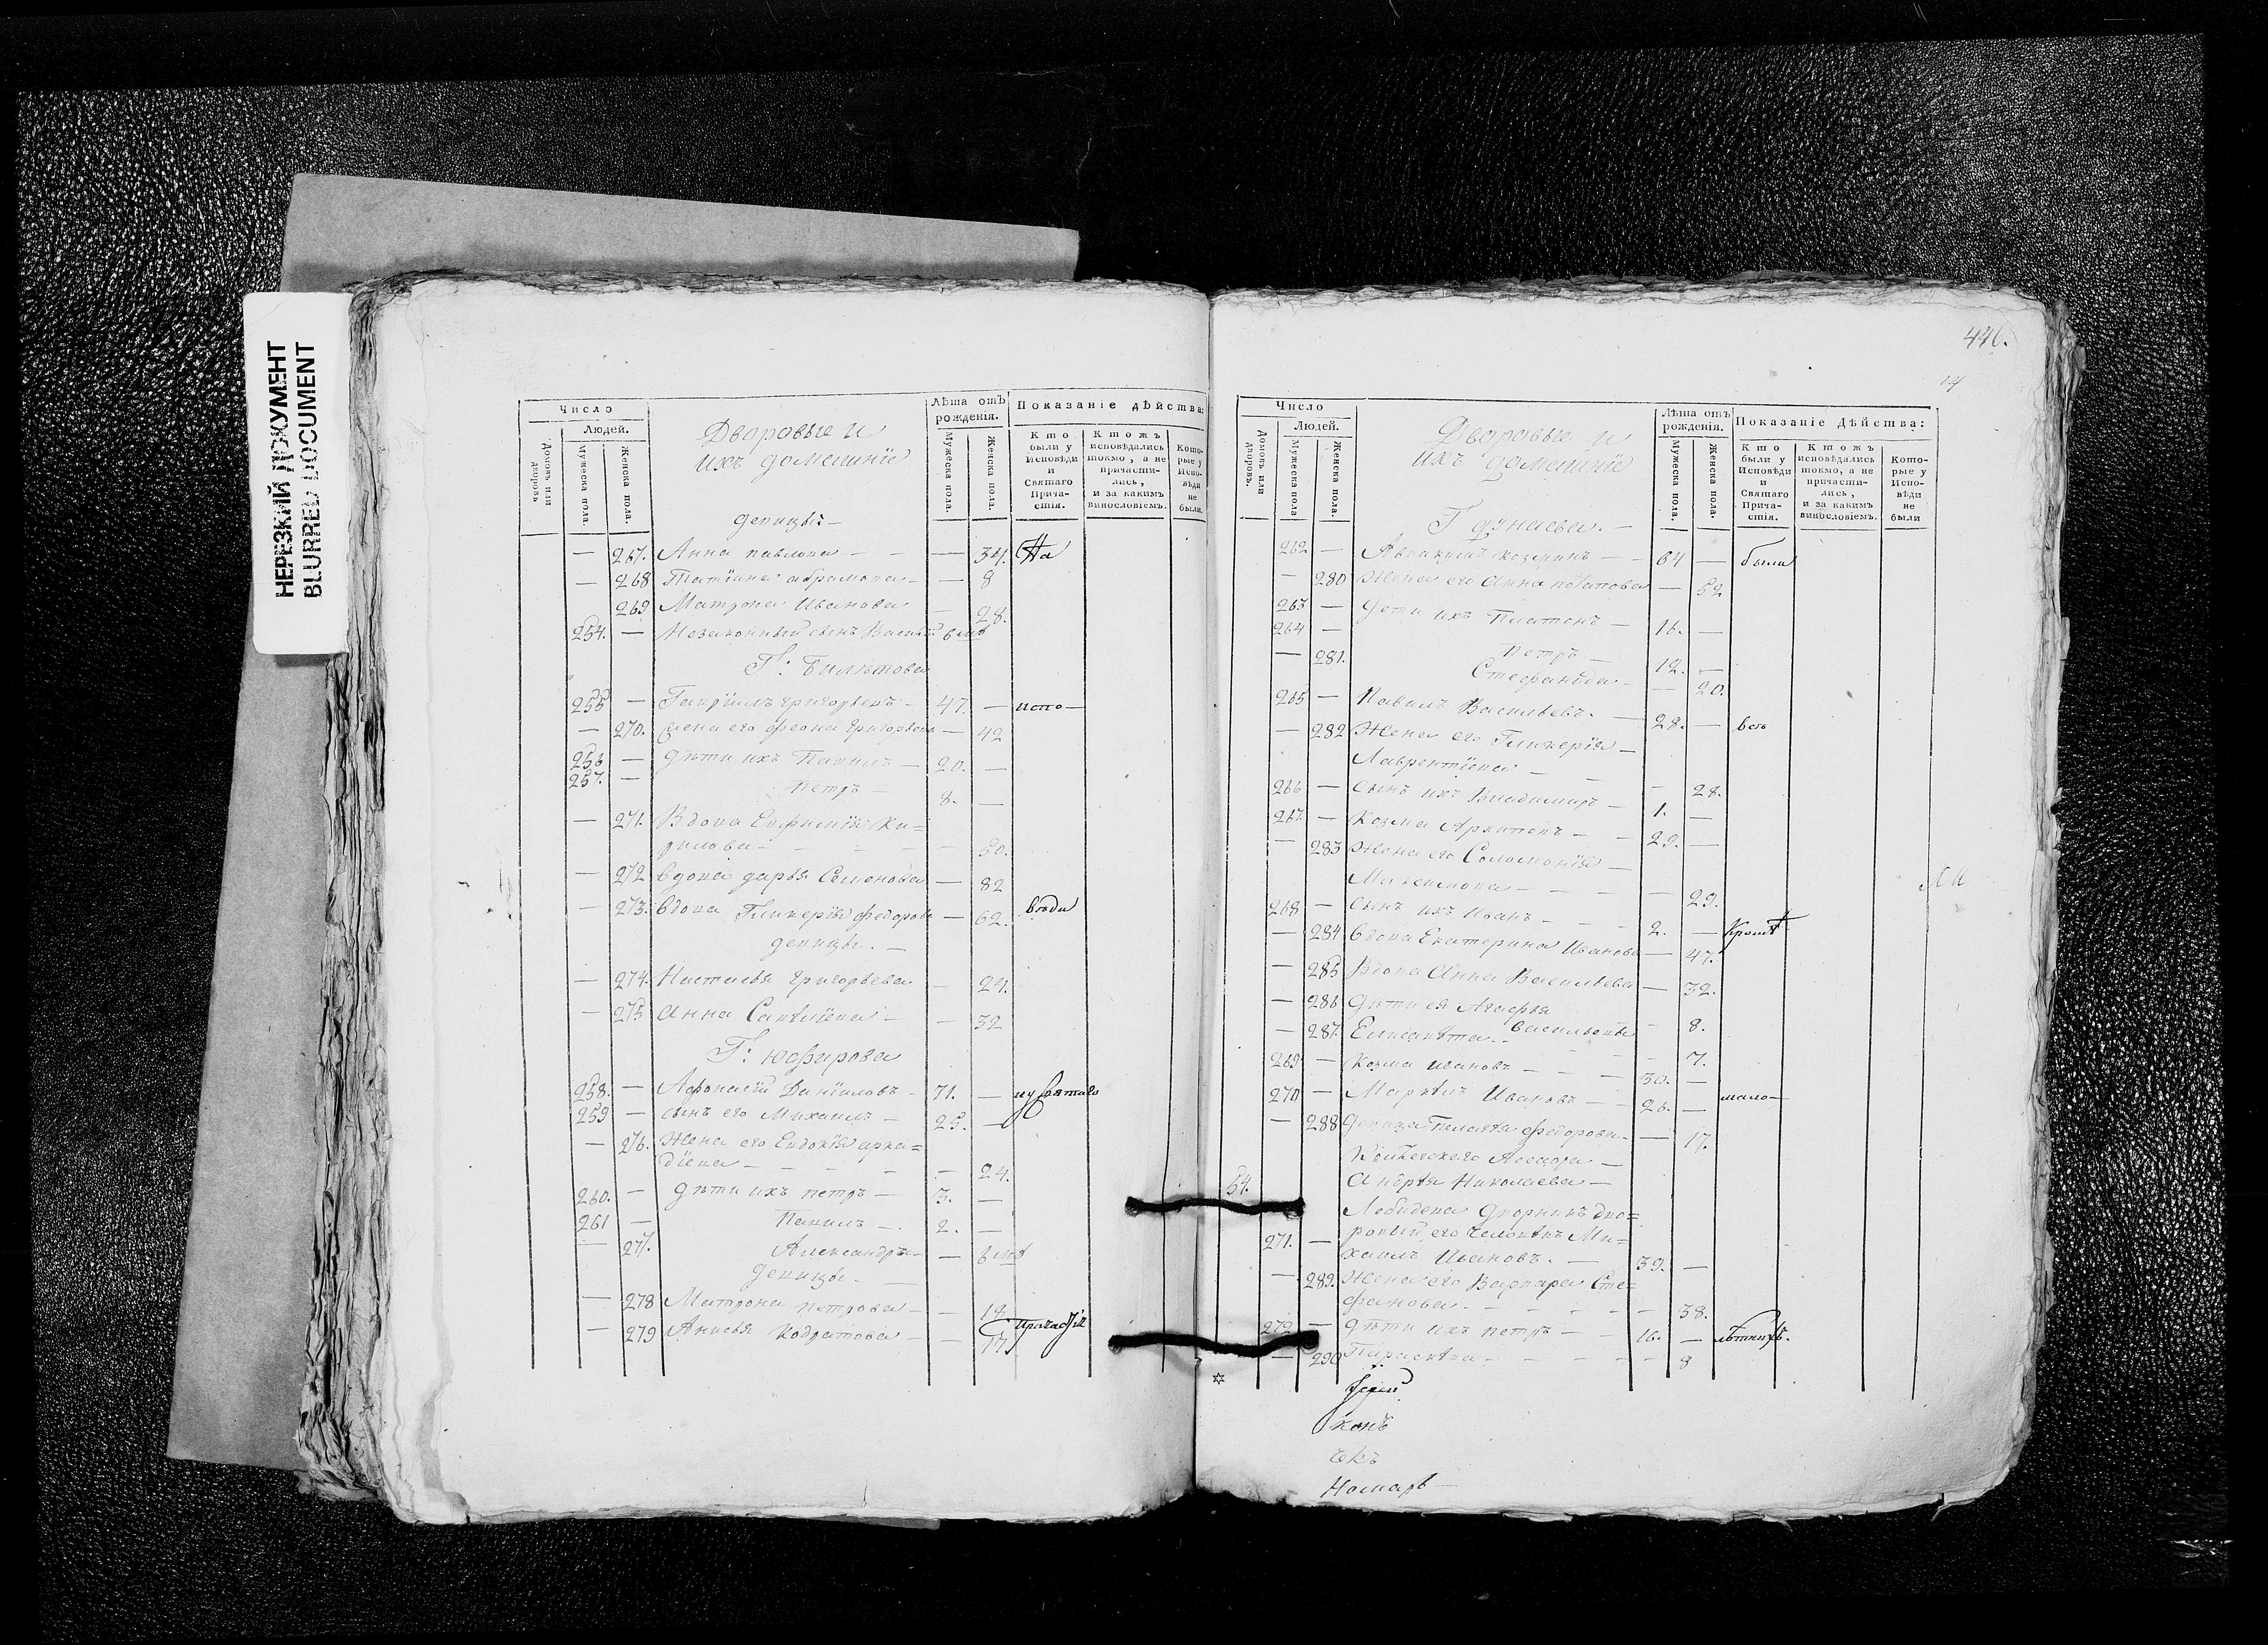 НЕРЕЗКИЙ ДОКУМЕНТ
BLURRED DOCUMENT
Число
Людей.
Домовъ или дворовъ
Мужеска пола.
Женска пола.
Дворовые и
ихъ домашнiе
Лѣта отъ рожденiя.
Мужеска пола.
Женска пола.
Показанiе дѣйства:
Кто были у Исповѣди и Святаго Прича-стiя.
Ктожъ исповѣдались токмо, а не причасти-лись, и за какимъ винословiемъ.
Кото-рые у Испо-вѣди не были.
девицы: —
— 267. Анна павлова — — — 34. На
— 268 Татiяна абрамова — — 8
269 Матрона Иванова — 28.
254. — Незаконный сынъ Василiй
Г:
255 — Гаврiилъ григорьевъ — 47. — испо—
— 270. жена его феона григорьева — 42
256 — дѣти ихъ Павилъ — 20. —
257. — Петръ — 8. —
— 271. Вдова Евфимiя Ки=
рилова — — — — — 50.
— 272 вдова дарья Семенова — 82
— 273. вдова Гликерiя федорова — 62. вѣди
девицы. —
— 274. Настасья григорьева — 29.
— 275 Анна Савелiева — — 32
Г: юсфирова
258. — Афонасiй Данiиловъ — 71. — и у святаго
259 — сынъ его Михаилъ — 25. —
— 276. Жена его Евдокiя арка=
дiева — — — — — 24.
260. — дѣти ихъ петръ — 3. —
261 — Павилъ — 2. —
— 277. Александра —
девицы. —
— 278 Матрона петрова — — 18
— 279 Анисья кодратова — — 17 причастiя
446.
14
Число
Людей.
Домовъ или дворовъ.
Мужеска пола
Женска пола.
Дворовые и
ихъ домашнiе
Лѣта отъ рожденiя.
Мужеска пола.
Женска пола.
Показанiе Дѣйства:
Кто были у Исповѣди и Святаго Прича-стiя.
Ктожъ исповѣдались токмо, а не причасти-лись, и за какимъ винословiемъ.
Кото-рые у Испо-вѣди не были
Г дунаева. —
262 — Аввакумъ козминъ — 64 — были
— 280 Жена его Анна потапова — 52
263 — Дѣти ихъ Платонъ — 16. —
264 — Петръ — 12. —
— 281. Стефанида — — 20.
265 — Павилъ Васильевъ. — 28. — всѣ
— 282 Жена его Гликерiя —
Лаврентiева — — — 28.
266 — Сынъ ихъ Владимиръ — 1. —
267. — Козма Архиповъ — — 29. —
— 283 Жена его Соломонiя —
Максимова — — — — 29.
268 — Сынъ ихъ Иванъ — — — 2. — кромѣ
— 284 вдова Екатерина Иванова — 47.
— 285 Вдова Анна Васильева — 32.
— 286 дѣти ея Агафья
Васильевы — 8.
— 287. Елисавета — — — — 7.
269 — Козма Ивановъ — — — 30. —
270 — Маркелъ Ивановъ — — 26. — мало—
— 288 Девица Пелагея федорова — — 17.
Асесора —
54. Андрея Николаева —
Лебидева дворникъ дво=
271. — ровый, его человѣкъ Ми=
хаилъ Ивановъ. — 39. —
— 289. Жена его Варвара Сте=
фанова — — — — — 38.
272 — Дѣти ихъ петръ — — 16. — лѣтнихъ.
— 290 Параскева — — — — — 8
конъ
Номарь